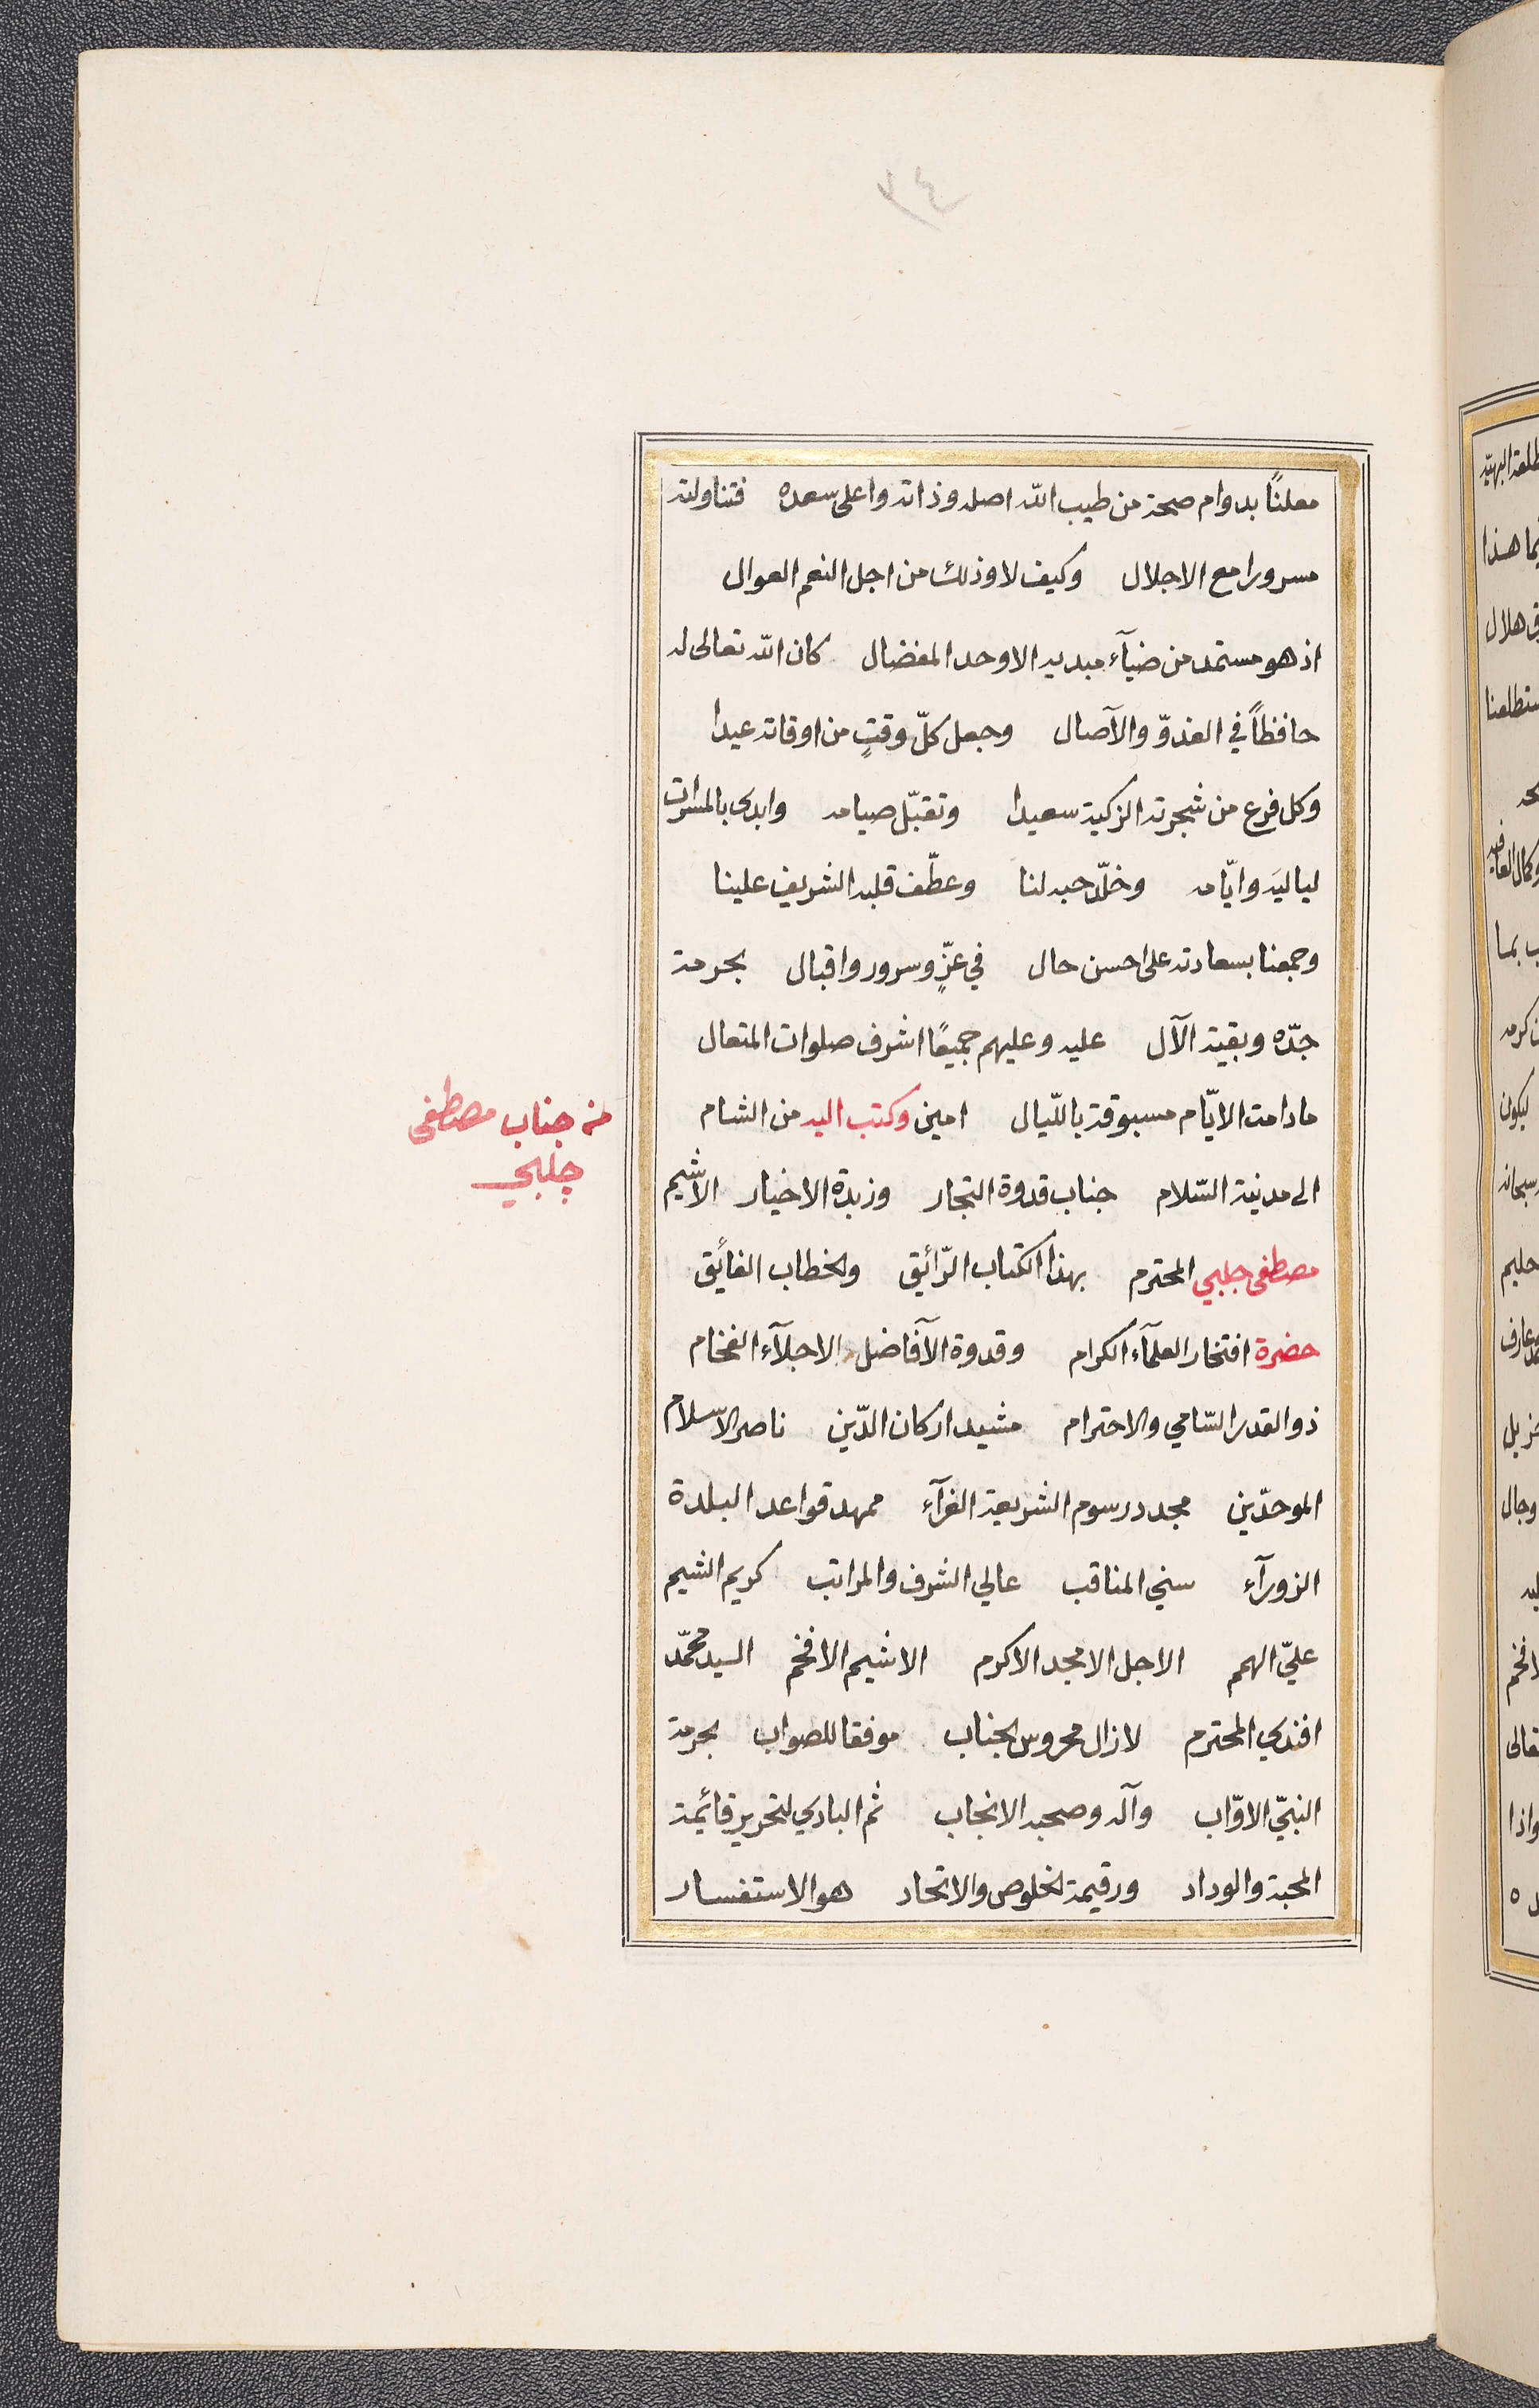 معلنًا بدوام صحة من طيب الله اصله وذاته واعلى سعده فتناولته
مسرورا مع الاجلال وكيف لا وذلك من اجل النعم العوال
اذ هو مستمد من ضيآء مبديه الاوحد المفضال كان الله تعالى له
حافظاً في الغدوّ والآصال وجعل كلّ وقتٍ من اوقاته عيدا
وكل فرع من شجرته الزكية سعيدا وتقبّل صيامه وابدى بالمسرات
لياليَه وايّامه وخلّد حبه لنا وعطّف قلبه الشريف علينا
وجمعنا بسعادته على احسن حال في عزٍّ وسرور واقبال بحرمة
جدّه وبقية الآل عليه وعليهم جميعًا اشرف صلوات المتعال
مادامت الايّام مسبوقة بالليال امين وكتب اليه من الشام
من جناب مصطفى
چلبي
الى مدينة السّلام جناب قدوة التجار وزبدة الاخيار الاشيم
مصطفى جلبي المحترم بهذا الكتاب الرّائيق والخطاب الفائيق
حضرة افتخار العلمآء الكرام وقدوة الآفاضل الاجلآء الفخام
ذو القدر السّامي والاحترام مشيد اركان الدّين ناصر الاسلام
الموحدّين مجدد رسوم الشريعة الغرآء ممهد قواعد البلدة
الزورآء سني المناقب عالي الشرف والمراتب كريم الشيم
عليّ الهمم الاجل الامجد الاكرم الاشيم الافخم السيد محمّد
افندي المحترم لازال محروس الجناب موفقا للصواب بحرمة
النبيّ الاوّاب وآله وصحبه الانجاب ثم البادي لتحرير قائيمة
المحبة والوداد ورقيمة الخلوص والاتحاد هو الاستفسار